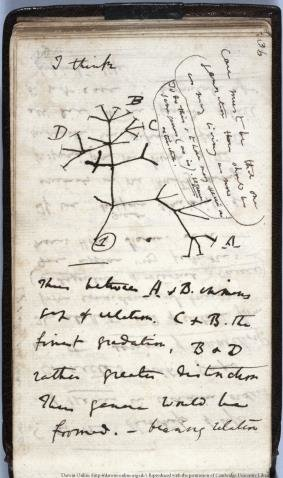 36
I think
Case must be that one
generation then should be
as many living as now
To do this & to have many species in
same genus (as is) requires
extinction
B
C
D
A
1
Thus between A & B. immens
gap of relation. C & B. the
finest gradation, B & D
rather greater distinction
Thus genera would be
formed. — bearing relation
Darwin Online (http://darwin-online.org.uk/) Reproduced with the permission of Cambridge University Library